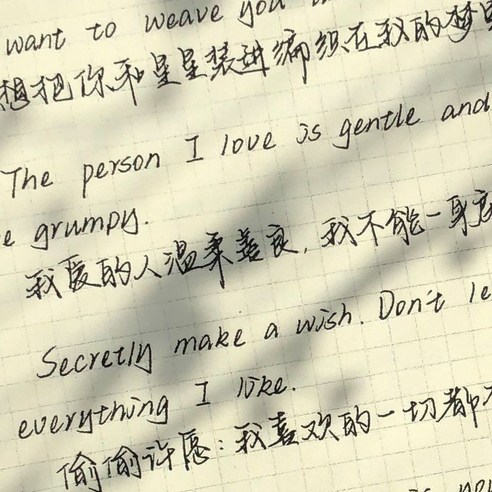 want to weave you
想把你和星星装进编织在我的梦里
The person I love is gentle and
grumpy.
我爱的人温柔善良,我不能一身
Secretly make a wish. Don't le
everything I like.
偷偷许愿:我喜欢的一切都不